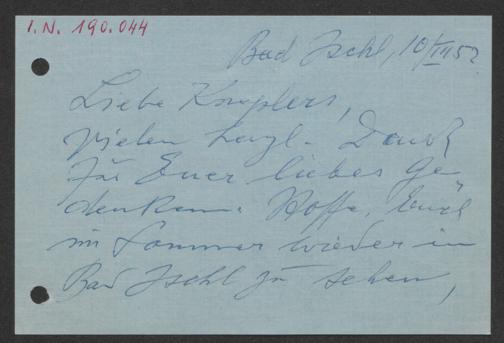 I.N. 190.044
Bad Ischl, 10/III 52
Liebe Kneplers,
Vielen herzl. Dank
für Euer liebes Ge-
denken. Hoffe, Euch
im Sommer wieder in
Bad Ischl zu sehen,